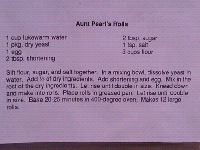 Aunt Pearl's Rolls
1 cup lukewarm water 2 tbsp. sugar
1 pkg. dry yeast 1 tsp. salt
1 egg 3 cups flour
2 tbsp. shortening
Sift flour, sugar, and salt together. In a mixing bowl, dissolve yeast in
water. Add ½ of dry ingredients. Add shortening and egg. Mix in the
rest of the dry ingredients. Let rise until double in size. Knead down
and make into rolls. Place rolls in greased pan. Let rise until double
in size. Bake 20-25 minutes in 400-degree oven. Makes 12 large
rolls.